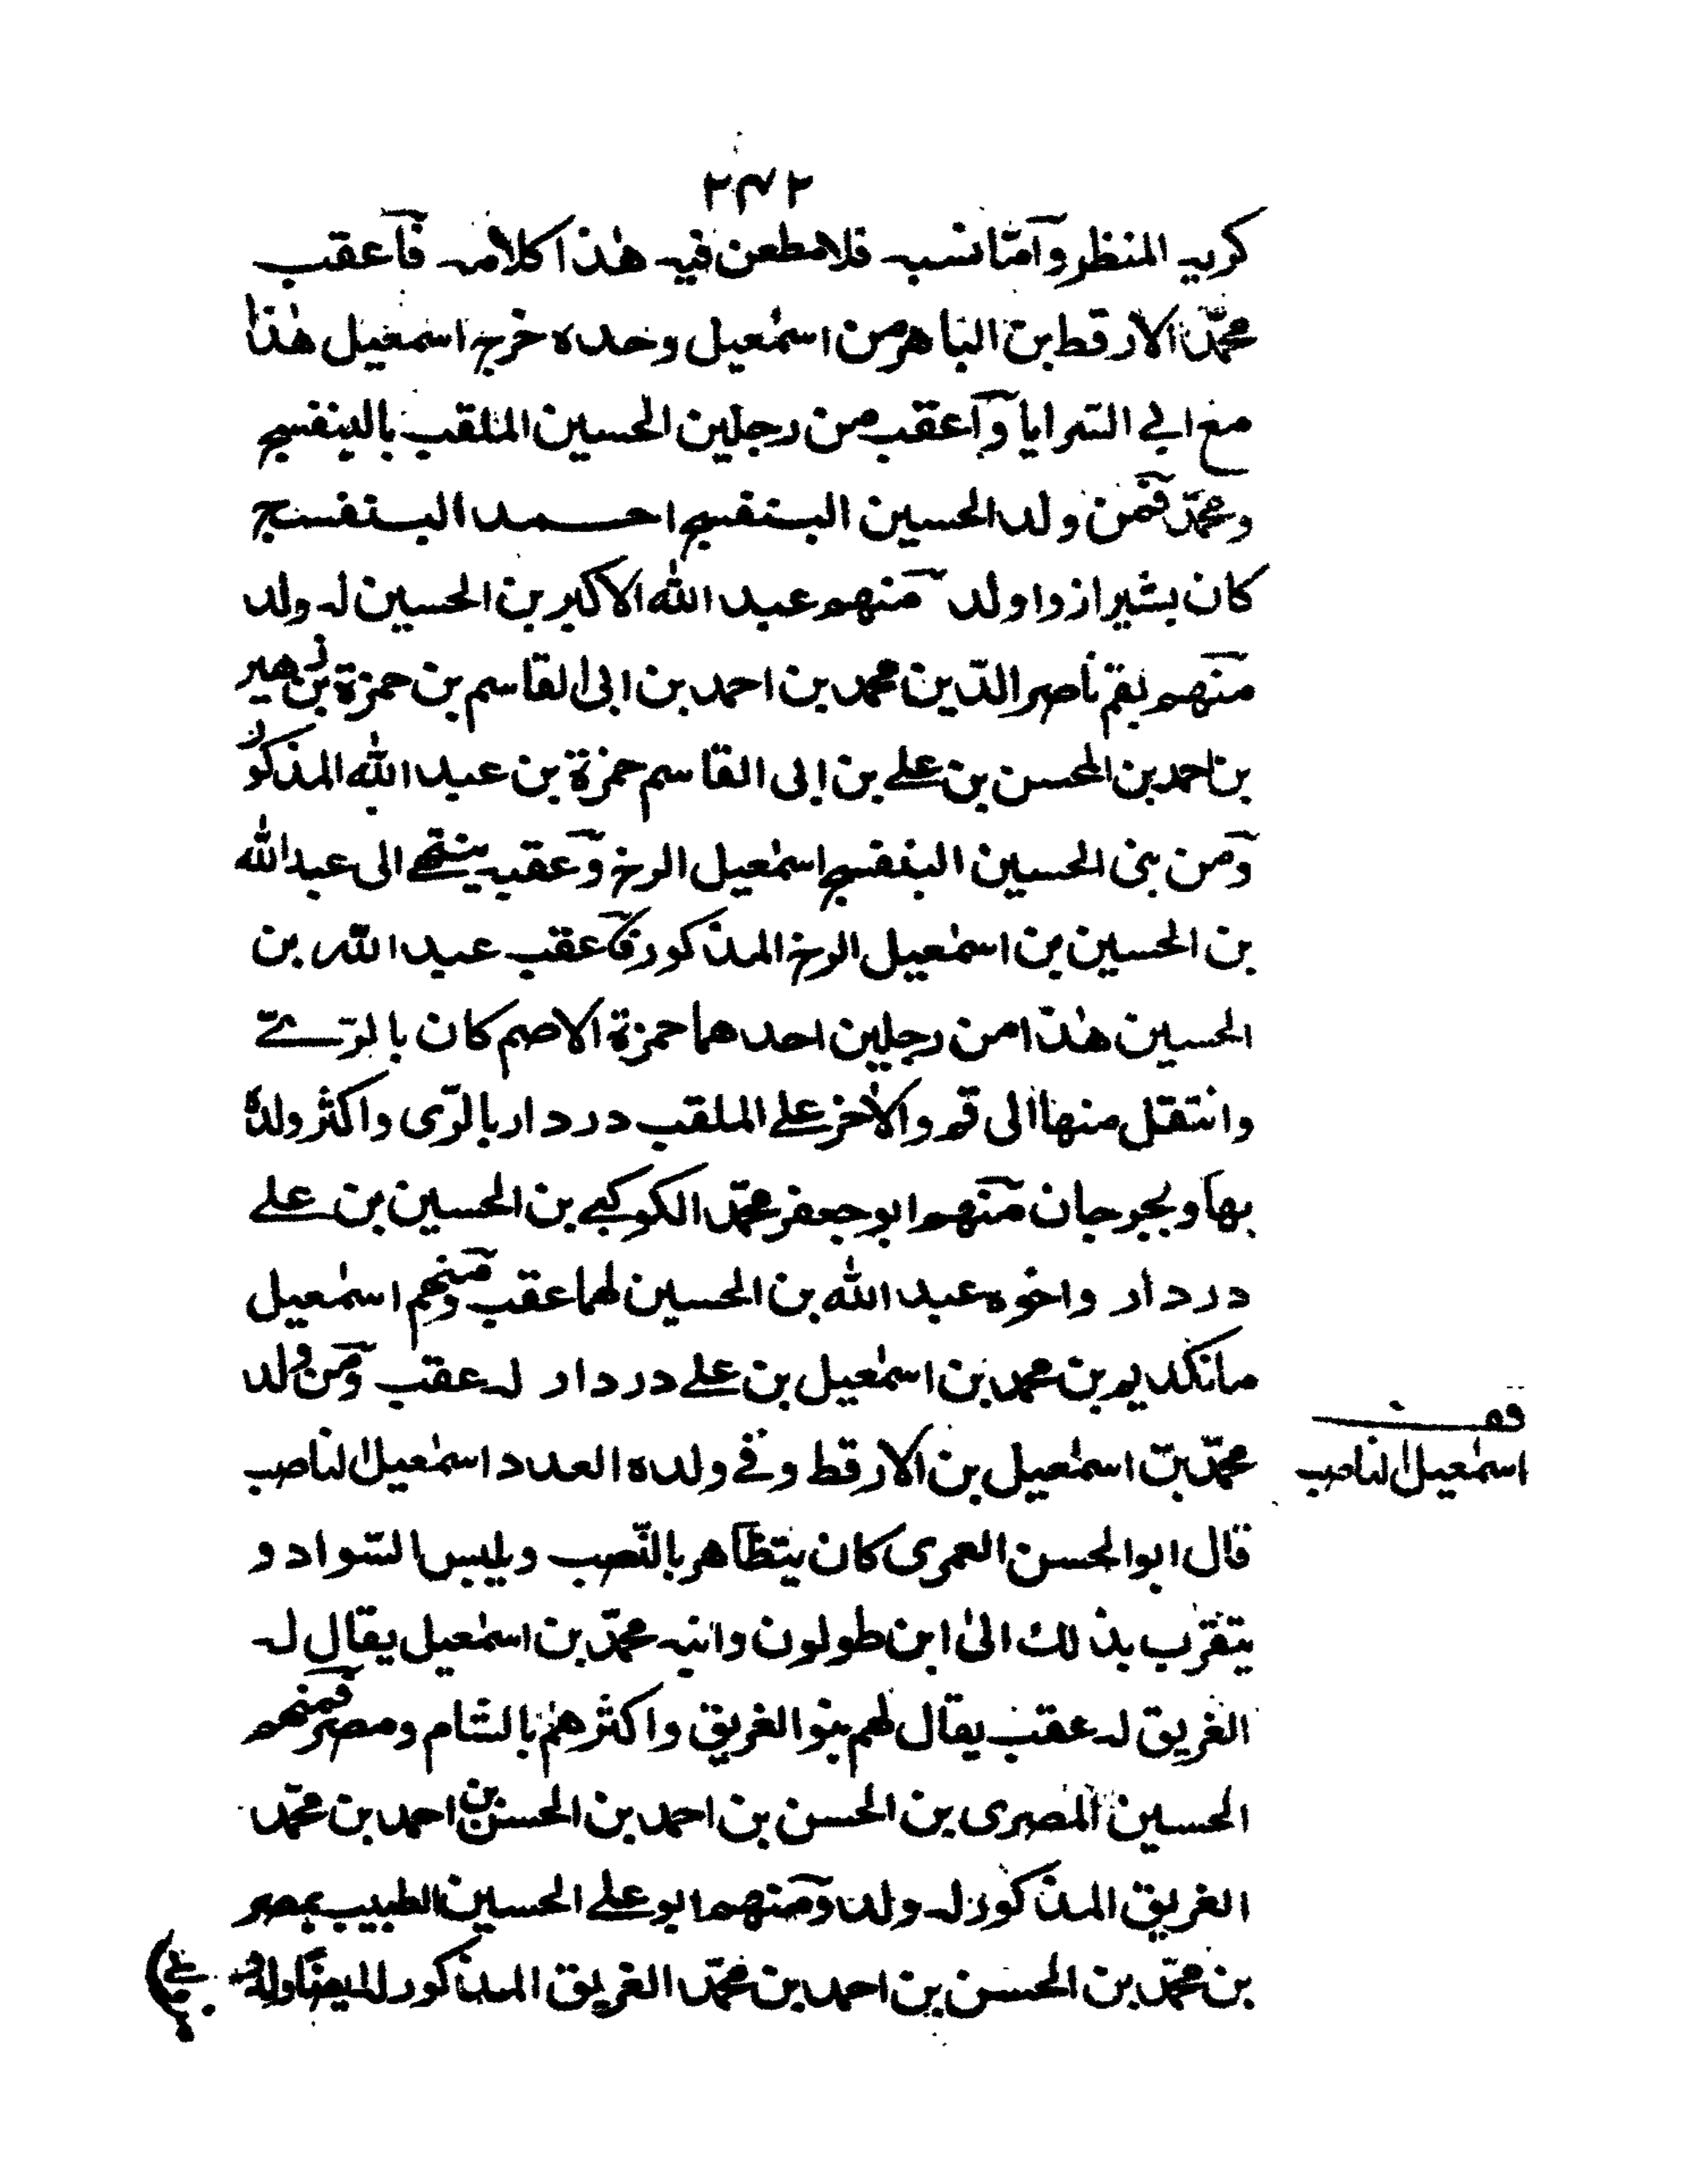 ٢٤٢
كريه المنظر وأمّا نسبه فلا مطعن فيه هٰذا كلامه فأعقب
محمّد الارقط بن الباهر من اسمٰعيل وحده خرج اسمٰعيل هٰذا
مع ابي السّرايا وأعقب من رجلين الحسين الملقب بالبنفسج
ومحمّد فمن ولد الحسين البنفسج احمد البنفسج
كان بشيراز واولد منهم عبد الله الاكبر بن الحسين له ولد
منهم بقم ناصر الدّين محمد بن احمد بن ابى القاسم بن حمزة بن زهير
بن احمد بن المحسن بن علے بن ابى القاسم حمزة بن عبد الله المذكور
ومن بنى الحسين البنفسج اسمٰعيل الرخ وعقبه ينتهے الى عبد الله
بن الحسين بن اسمٰعيل الرخ المذكور فأعقب عبد الله بن
الحسين هٰذا من رجلين احدهما حمزة الاصم كان بالرّے
وانتقل منها الى قم والاٰخر علے الملقب دردار بالرّى واكثر ولده
بها وبجرجان منهم ابو جعفر محمّد الكوكبے بن الحسين بن علے
دردار واخوه عبد الله بن الحسين لهما عقب ومنهم اسمٰعيل
مانكديم بن محمد بن اسمٰعيل بن علے دردار له عقب ومن ولد
محمّد بن اسمٰعيل بن الارقط وفے ولده العدد اسمٰعيل الناصب
قف
اسمٰعيل الناصب
قال ابو الحسن العمرى كان يتظاهر بالنّصب ويلبس السّواد و
يتقرّب بذلك الىٰ ابن طولون وابنه محمّد بن اسمٰعيل يقال له
الغريق له عقب يقال لهم بنو الغريق واكثرهم بالشام ومصر فمنهم
الحسين المصرى بن الحسن بن احمد بن الحسن بن احمد بن محمّد
الغريق المذكور له ولد ومنهم ابو علے الحسين الطبيب بمصر
بن محمّد بن الحسن بن احمد بن محمّد الغريق المذكور له ايضًا ولد